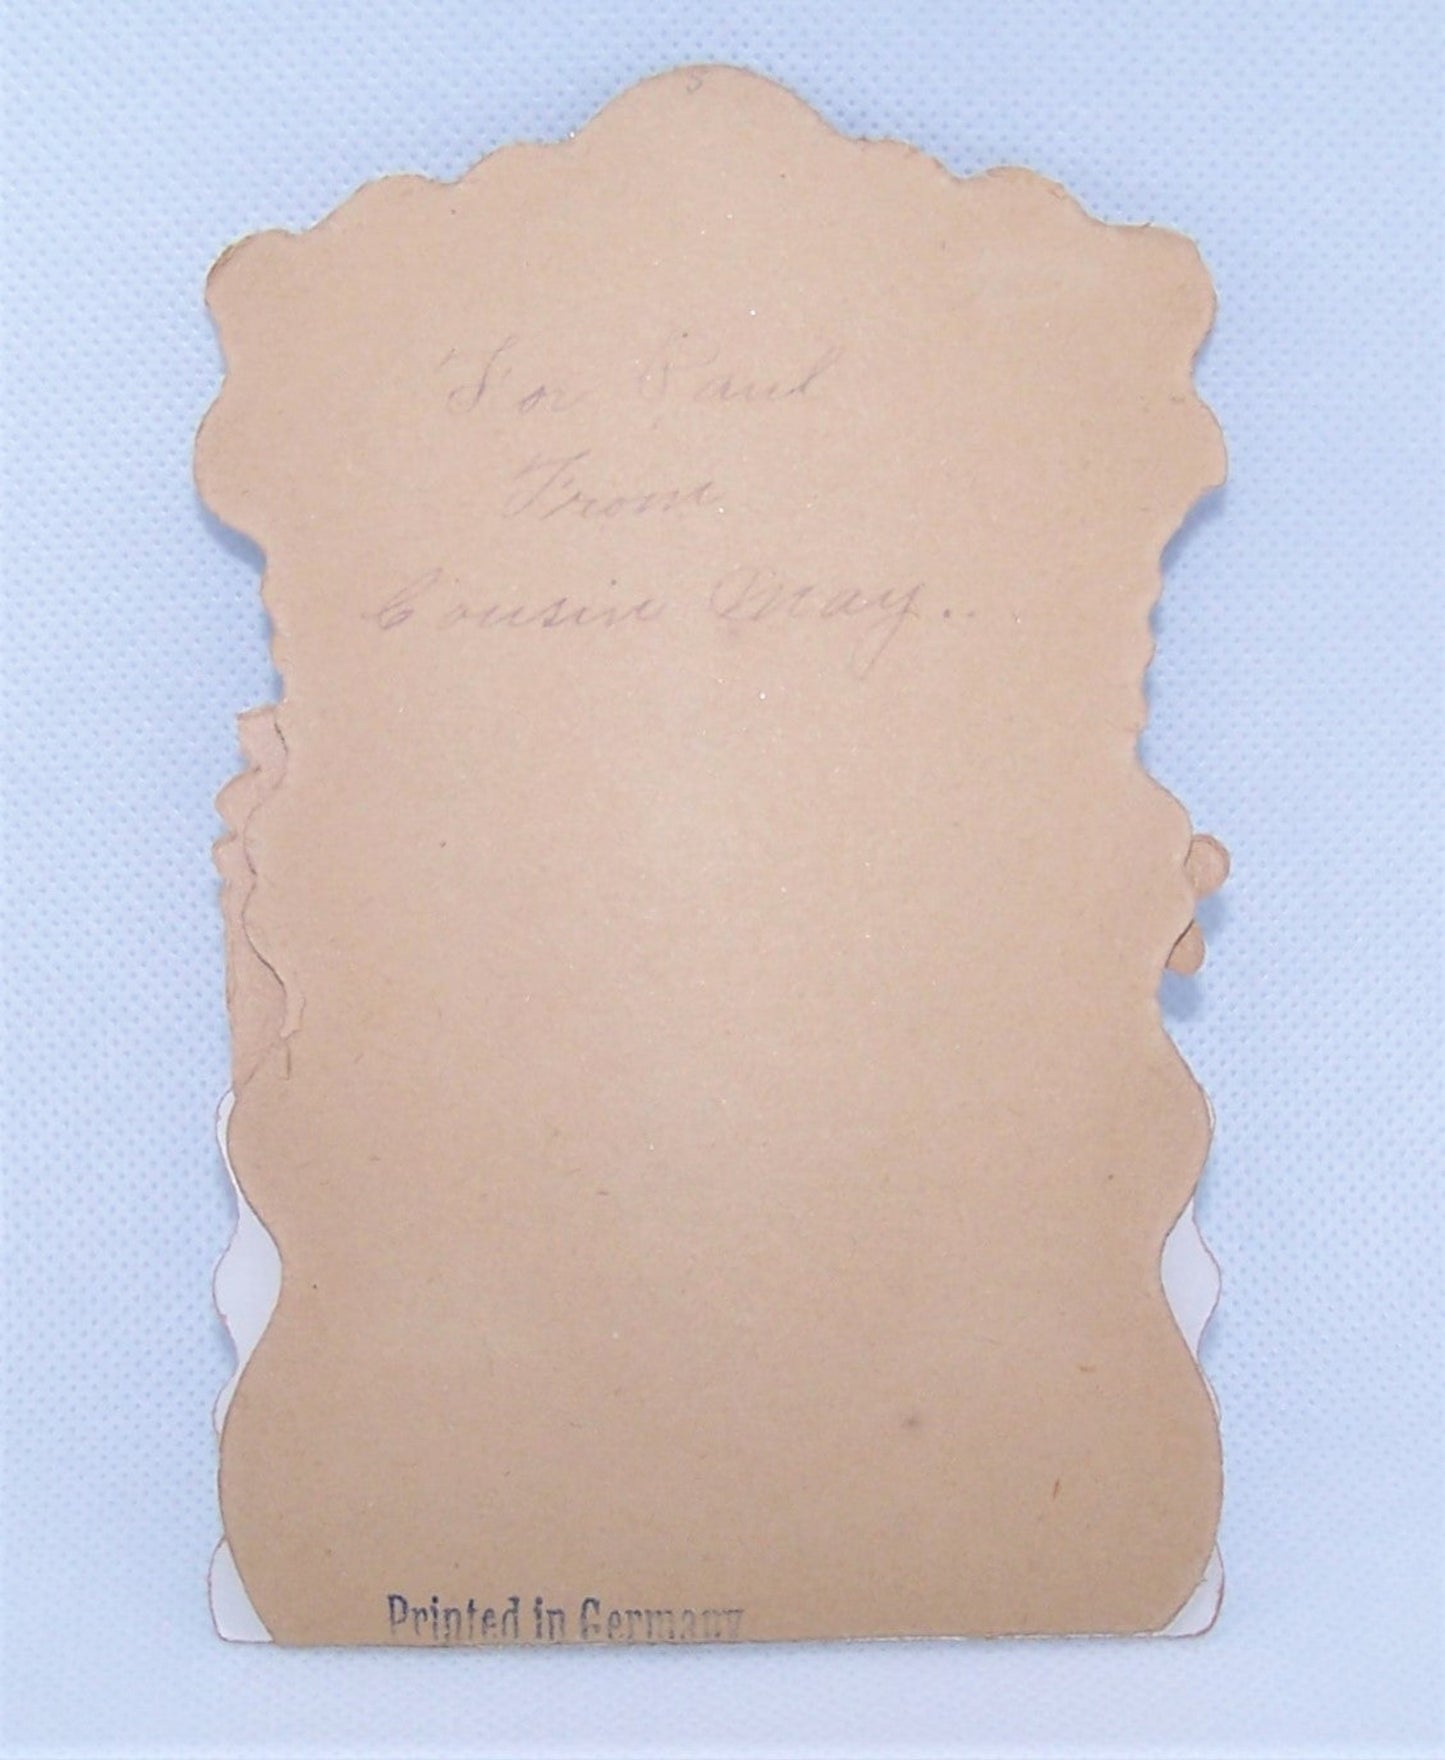 For Paul
From
Cousin May..
Printed in Germany